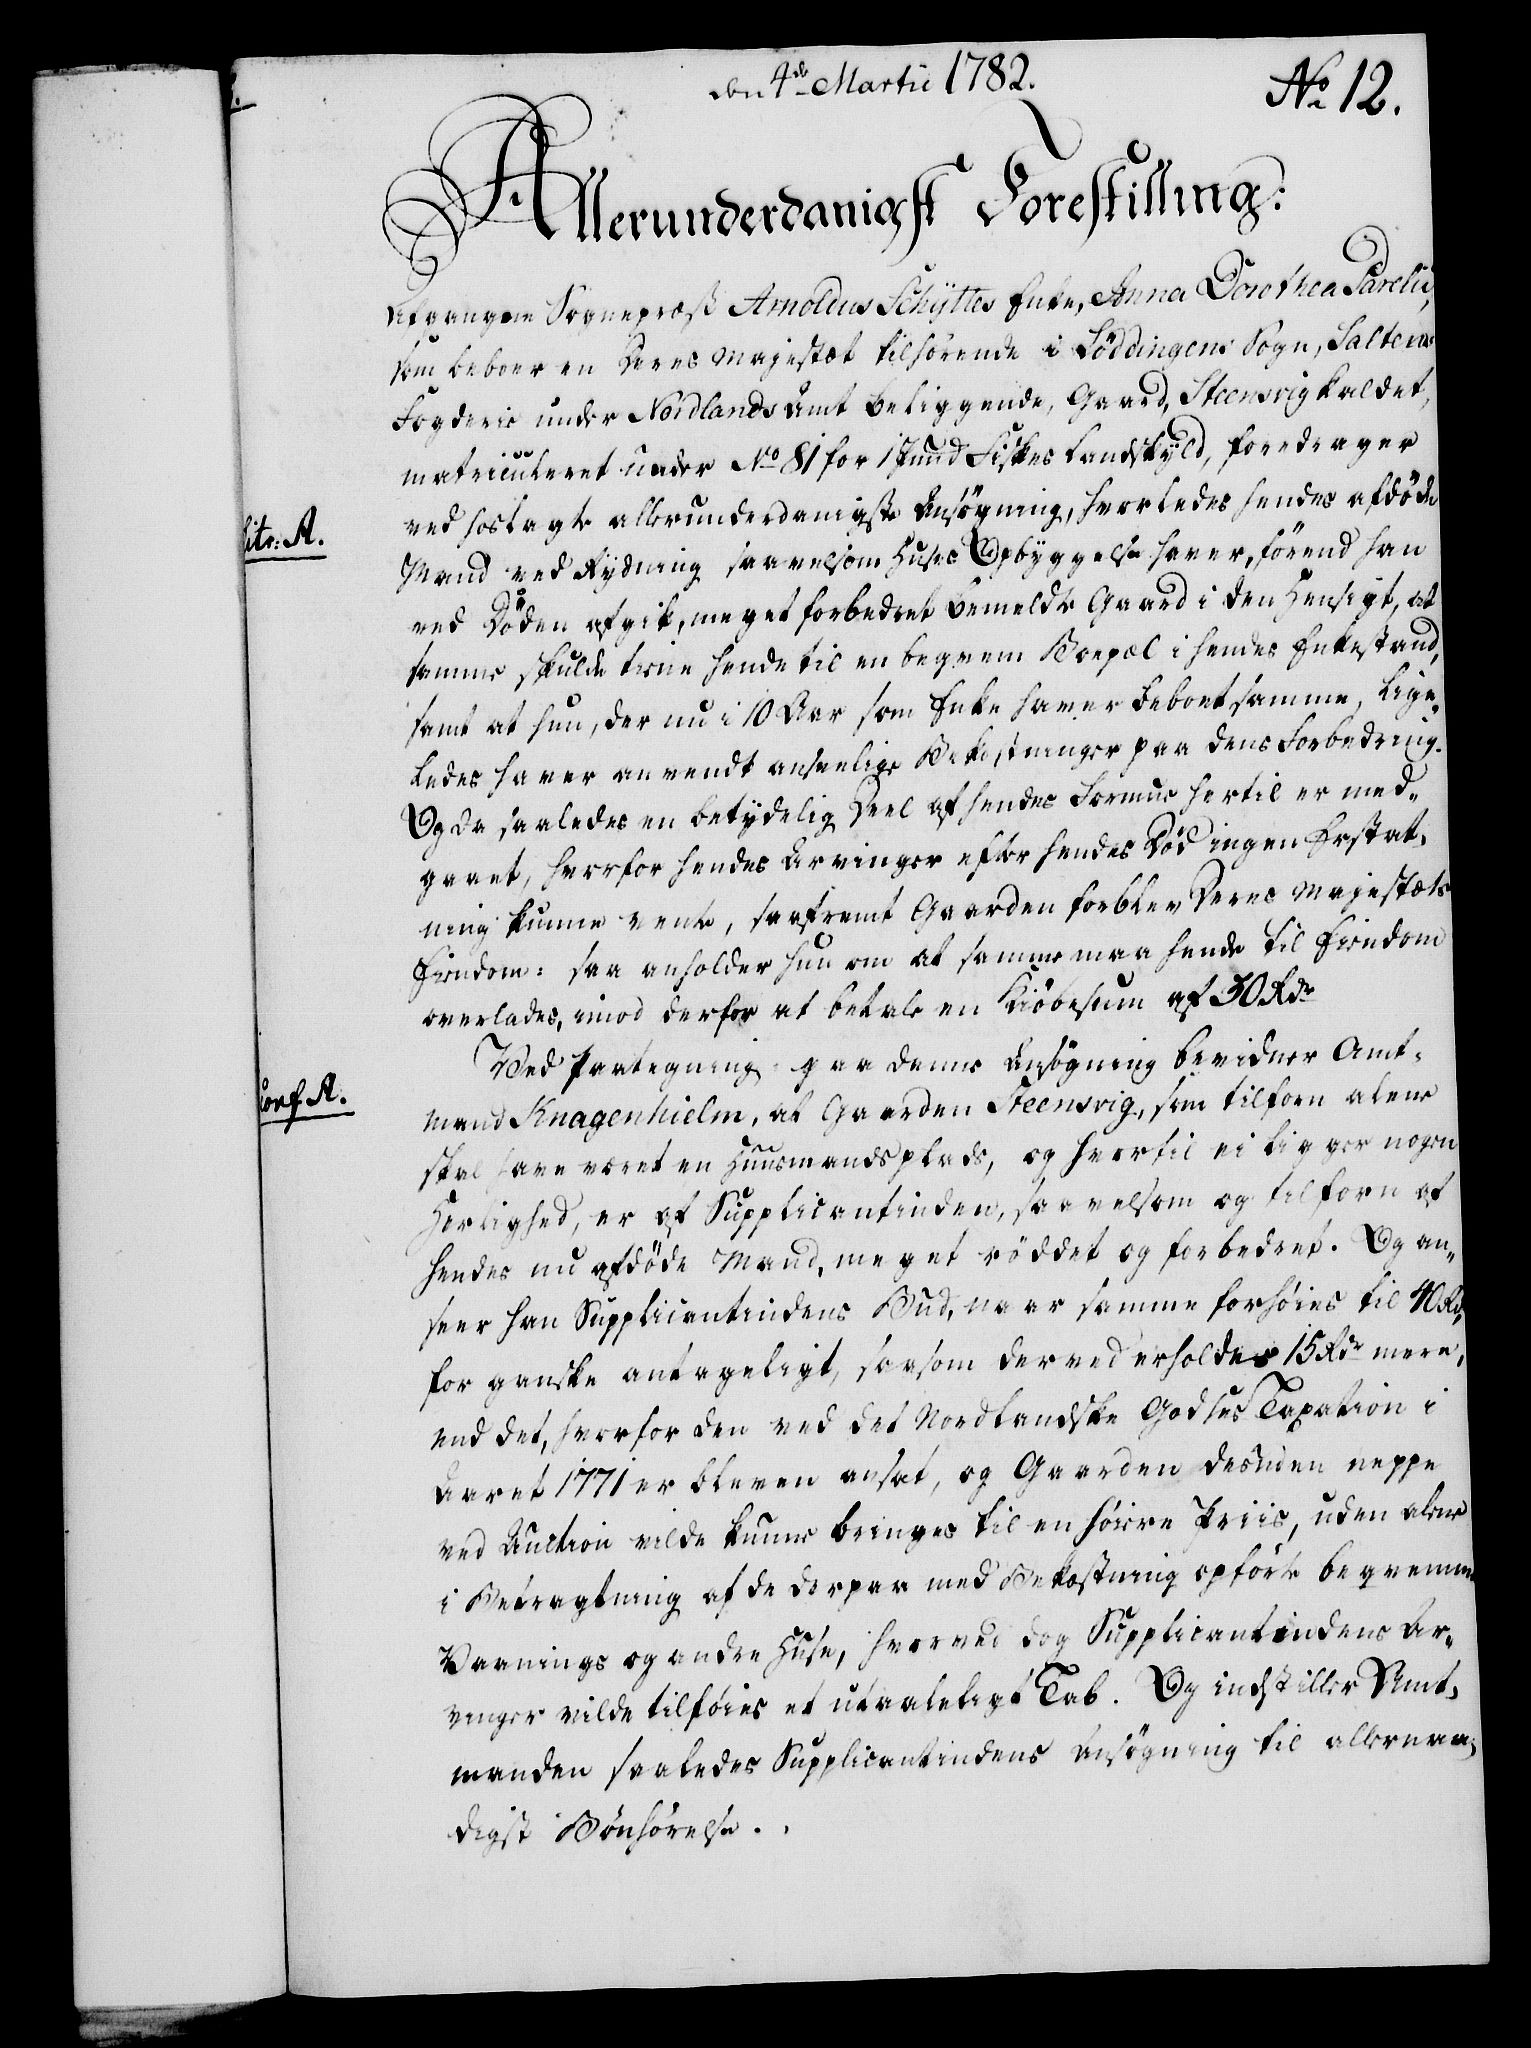 den 4de Martii 1782.
No 12.
Allerunderdanigst Forestilling:
Afgangne Sognepræst Arnoldus Schyttes Enke, Anna Dorothea Parelii,
som beboer en Deres Majestæt tilhørende i Löddingens Sogn, Saltens
Fogderie under Nordlands Amt beliggende, Gaard, Steensvig kaldet,
matriculeret under No 81 for 1 Pund Fiskes Landskÿld, foredrager
ved hoslagte allerunderdanigste Ansøgning, hvorledes hendes afdöde
Litr: A.
Mand ved Rÿdning saavelsom Huses Opbÿggelse haver, förend han
ved Döden afgik, meget forbedret bemeldte Gaard i den Hensigt, at
samme skulde tiene hende til en beqvem Boepæl i hendes Enkestand,
samt at hun, der nu i 10 Aar som Enke haver beboet samme, lige-
ledes haver anvendt anseelige Bekostninger paa dens Forbedring.
Og da saaledes en betÿdelig Deel af hendes Formue hertil er med-
gaaet, hvorfor hendes Arvinger efter hendes Död ingen Erstat-
ning kunne vente, saafremt Gaarden forblev Deres Majestæts
Eiendom: saa anholder hun om at samme maa hende til Eiendom
overlades, imod derfor at betale en Kiöbesum af 30 Rdr
Ved Paategning paa denne Ansögning bevidner Amt-
Conf. A.
mand Knagenhielm, at Gaarden Steensvig, som tilforn alene
skal have været en Huusmandsplads, og hvortil ei ligger nogen
Herlighed, er af Supplicantinden, saavelsom og tilforn af
hendes nu afdöde Mand, meget röddet og forbedret. Og an-
seer han Supplicantindens Bud, naar samme forhöies til 40 Rd,
for ganske antageligt, saasom derved erholdes 15 Rdr mere,
end det, hvorfor den ved det Nordlandske Godses Taxation i
Aaret 1771 er bleven ansat, og Gaarden desuden neppe
ved Auction vilde kunne bringes til en höiere Priis, uden alene
i Betragtning af de derpaa med Bekostning opförte beqvemme
Vaanings og andre Huse, hvorved dog Supplicantindens Ar-
vinger vilde tilföies et utaaleligt Tab. Og indstiller Amt-
manden saaledes Supplicantindens Ansögning til allernaa-
digst Bönhörelse.